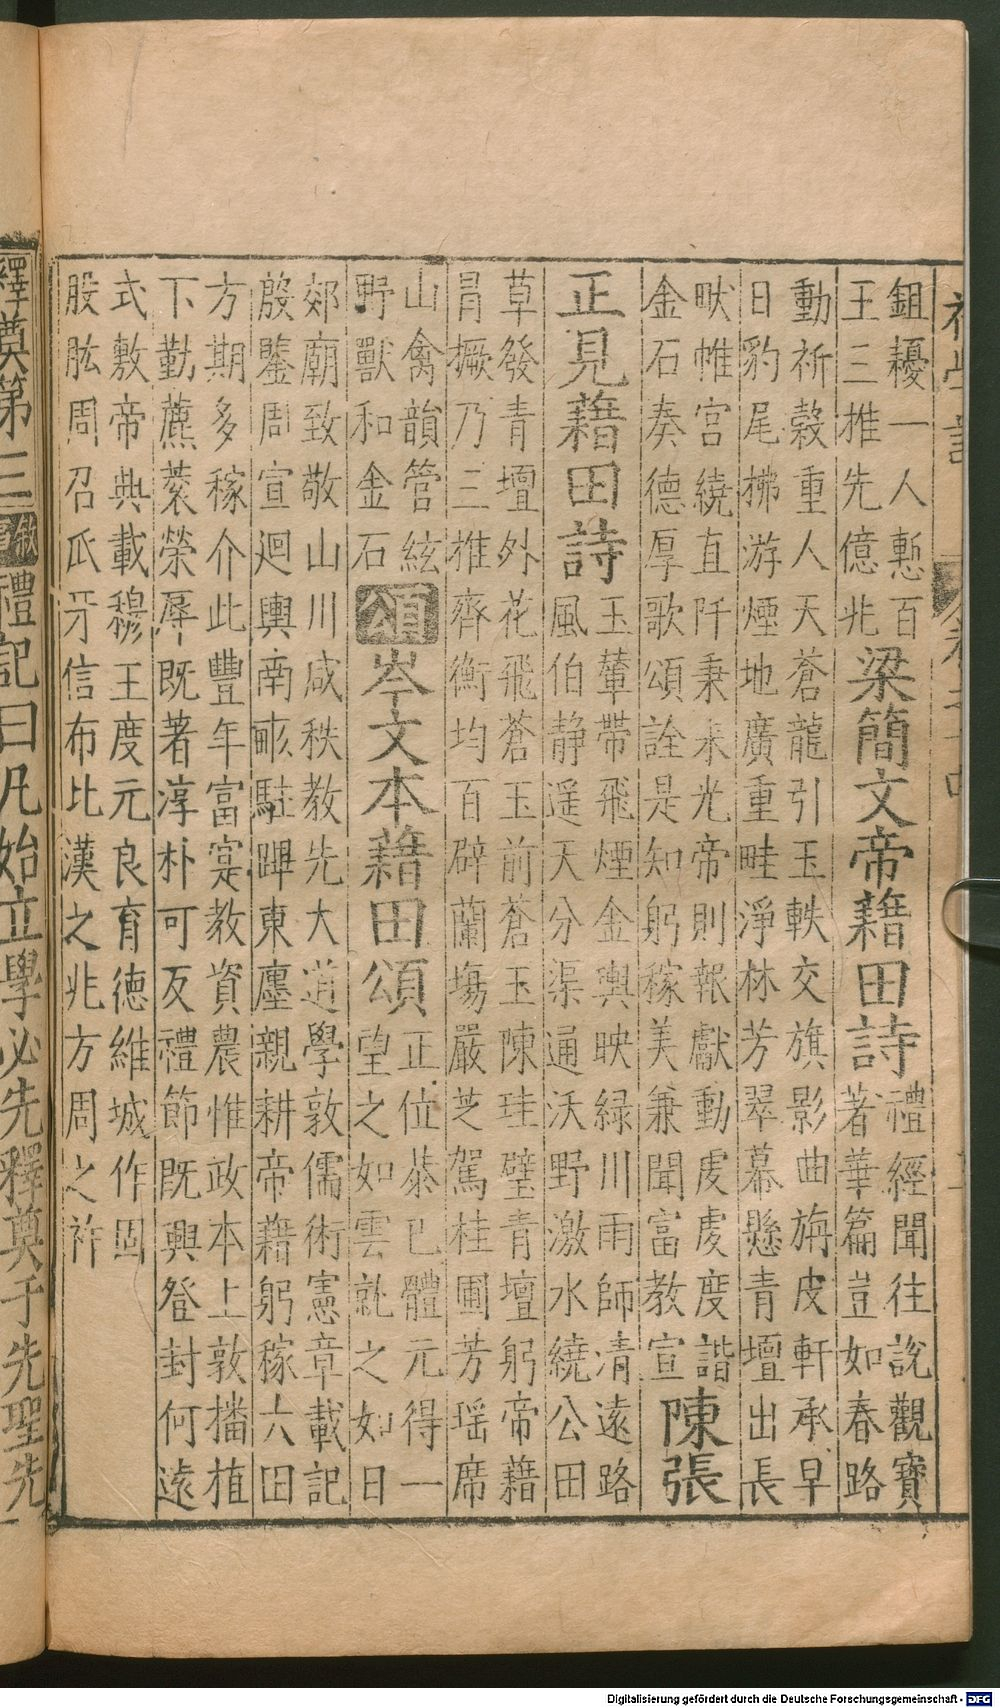 鉏耰一人慙百
王三推先億兆
梁簡文帝藉田詩
禮經聞往說觀寶
著華篇豈如春路
動祈穀重人天蒼龍引玉軼交旗影曲旃皮軒承早
日豹尾拂游煙地廣重畦淨林芳翠幕懸青壇出長
畎帷宮繞直阡秉耒光帝則報獻動虔虔度諧
金石奏德厚歌頌詮是知躬稼美兼聞富教宣
陳張
正見藉田詩
玉輦帶飛煙金輿映緑川雨師清遠路
風伯静遥天分渠通沃野激水繞公田
草發青壇外花飛蒼玉前蒼玉陳珪璧青壇躬帝藉
冐撅乃三推齊衡均百辟蘭塲嚴芝駕桂圃芳瑶席
山禽韻管絃
野獸和金石
頌
岑文本藉田頌
正位恭已體元得一
望之如雲就之如日
郊廟致敬山川咸秩教先大道學敦儒術憲章載記
殷鑒周宣迴輿南畝駐蹕東廛親耕帝藉躬稼六田
方期多稼介此豐年富寔教資農惟政本上敦播植
下勤藨蓘榮辱既著淳朴可反禮節既興登封何遠
式敷帝典載穆王度元良育德維城作固
股肱周召爪牙信布比漢之兆方周之祚
釋奠第三
禮記曰凡始立學必先釋奠于先聖先
Digitalisierung gefördert durch die Deutsche Forschungsgemeinschaft - DFG